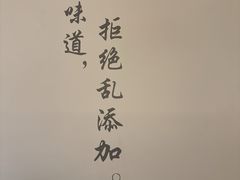 味道，
拒绝乱添加。